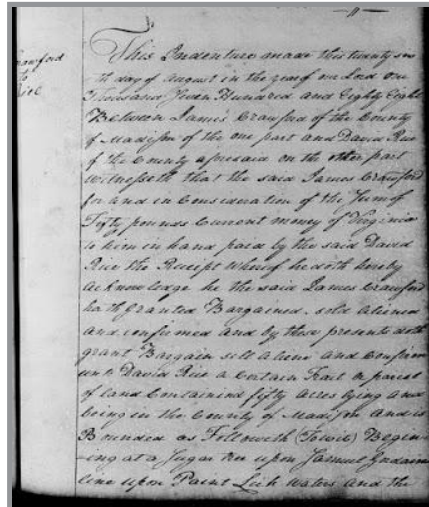 Crawford
to
Rice
This Indenture made this twenty sev
th day of August in the year of our Lord One
Thousand Seven Hundred and Eighty Eight
Between James Crawford of the County
of Madison of the one part and David Rice
of the County aforesaid on the other part
Witnesseth that the said James Crawford
for and in Consideration of the Sum of
Fifty pounds Current money of Virginia
to him in hand paid by the said David
Rice the Receipt Whereof he doth hereby
acknowledge he the said James Crawford
hath granted Bargained. sold aliened
and confirmed and by these presents doth
grant Bargain sell aliene and Confirm
unto David Rice a Certain Tract or parcel
of land Containing fifty acres lying and
being in the County of Madison and is
Bounded as Followeth (Towit) Begin
-ing at a Sugar tree upon Samuel
line upon Paint Lick Waters and the